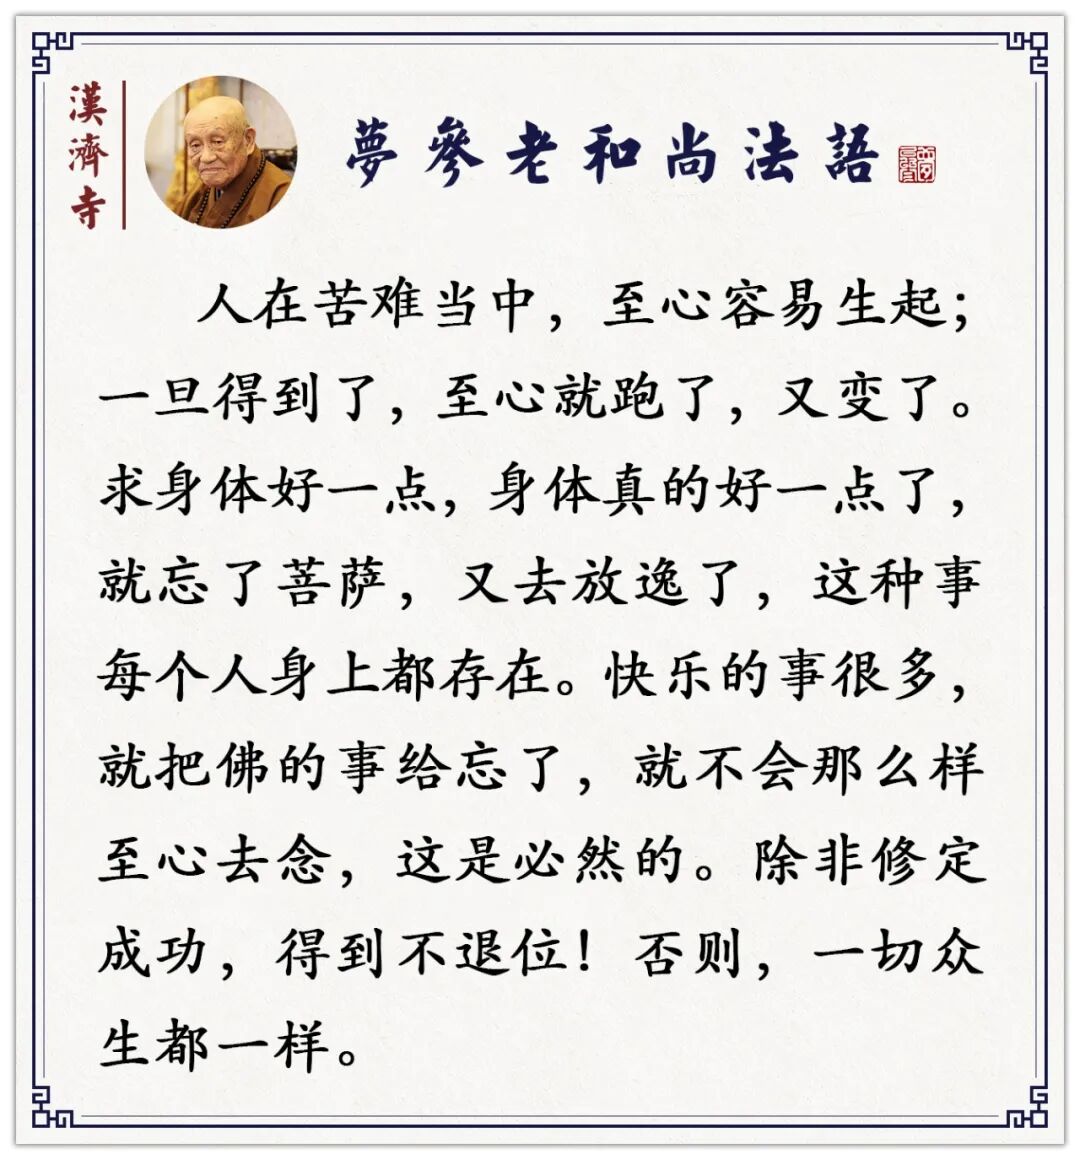 漢濟寺
夢參老和尚法語
人在苦难当中，至心容易生起；
一旦得到了，至心就跑了，又变了。
求身体好一点，身体真的好一点了，
就忘了菩萨，又去放逸了，这种事
每个人身上都存在。快乐的事很多，
就把佛的事给忘了，就不会那么样
至心去念，这是必然的。除非修定
成功，得到不退位！否则，一切众
生都一样。